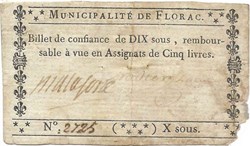 * MUNICIPALITÉ DE FLORAC. *
Billet de confiance de DIX sous, rembour-
sable à vue en Assignats de Cinq livres.
N.º 2725 (***) X sous.